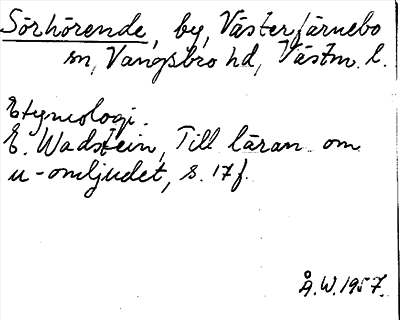 Sörhörende, by, Västerfärnebo
sn, Vangsbro hd, Västm. l.
Etymologi.
E. Wadstein, Till läran om
u-omljudet, s. 17 f.
Å.W. 1957.